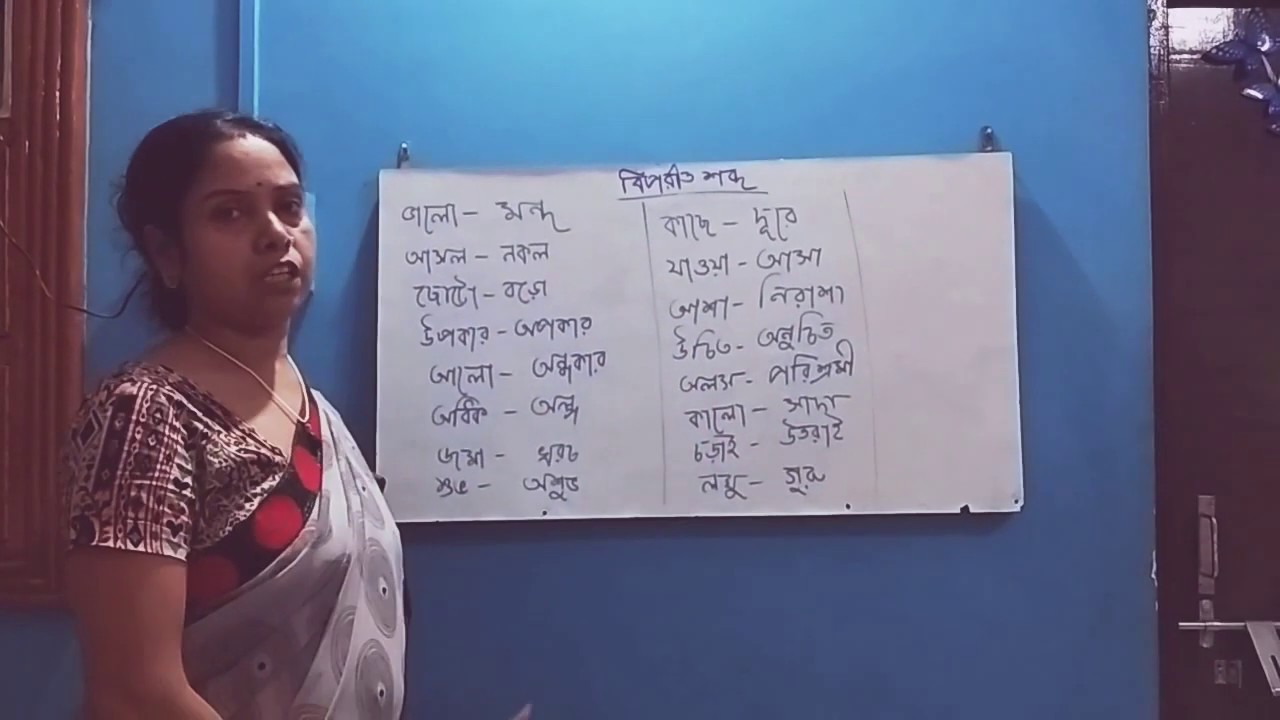 বিপরীত শব্দ
ভালো - মন্দ
আসল - নকল
ছোটো - বড়ো
উপকার - অপকার
আলো - অন্ধকার
অধিক - অল্প
জমা - খরচ
শুভ - অশুভ
কাছে - দূরে
যাওয়া - আসা
আশা - নিরাশা
উচিত - অনুচিত
অলস - পরিশ্রমী
কালো - সাদা
চড়াই - উতরাই
লঘু - গুরু